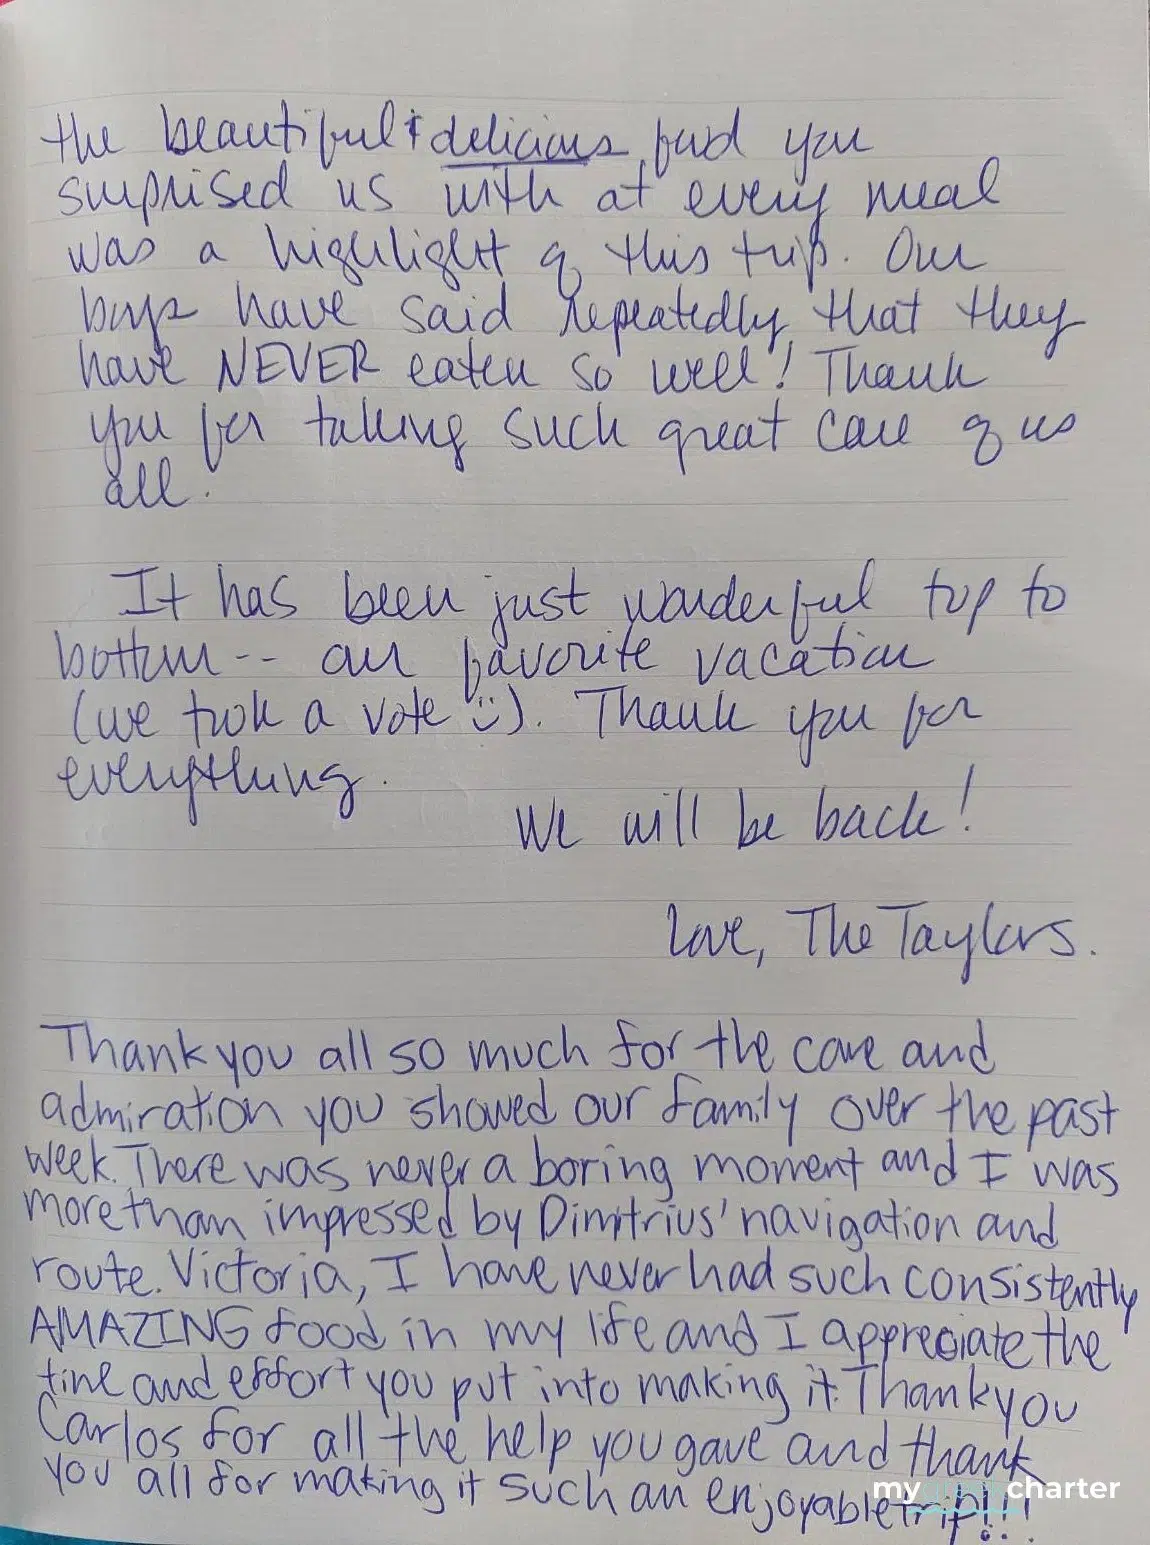 the beautiful & delicious food you
surprised us with at every meal
was a highlight of this trip. Our
boys have said repeatedly that they
have NEVER eaten so well! Thank
you for taking such great care of us
all.
It has been just wonderful top to
bottom -- our favorite vacation
(we took a vote :)). Thank you for
everything.
We will be back!
Love, The Taylors.
Thank you all so much for the care and
admiration you showed our family over the past
week. There was never a boring moment and I was
more than impressed by Dimitrius' navigation and
route. Victoria, I have never had such consistently
AMAZING food in my life and I appreciate the
time and effort you put into making it. Thank you
Carlos for all the help you gave and thank
you all for making it such an enjoyable trip!!!
my charter